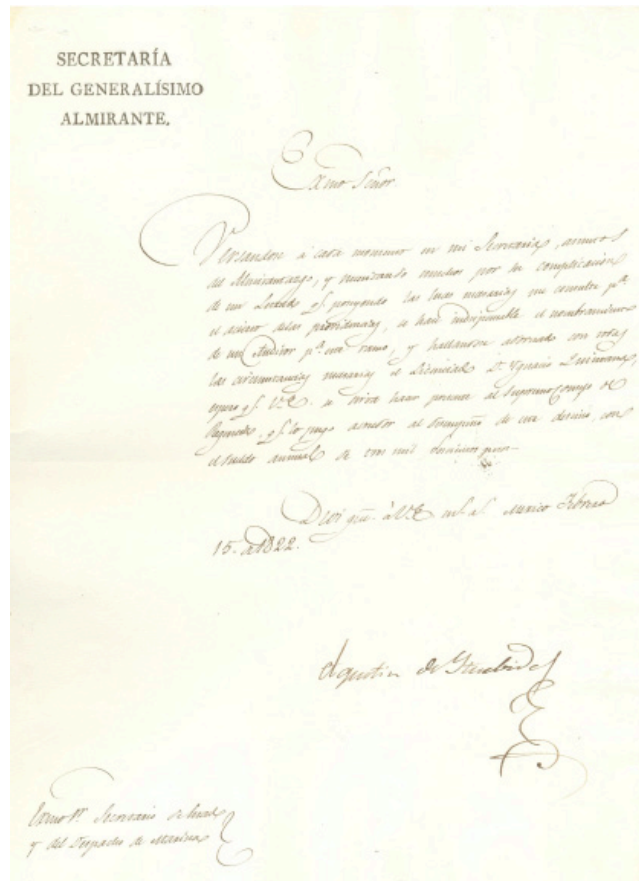 SECRETARÍA
DEL GENERALÍSIMO
ALMIRANTE.
Exmo Señor
Versandose á cada momento en mi Secretaría, asuntos
del Almirantazgo, y muchos por la complicacion
de un Letrado q.e poseyendo las luces me consulte p.a
el acierto delas providencias, se hace indispensable el nombramiento
de un Auditor p.a este ramo, y hallandose adornado con todas
las circunstancias necesarias el Licenciado D. Ygnacio
espero q.e V.E. se sirva hacer presente al Supremo Consejo de
Regencia, q.e lo juzgo acreedor al desempeño de este destino, con
el sueldo annual de tres mil pesos
Dios gue. á V.E. m.s a.s Mexico Febrero
15. de 1822.
Agustin de Yturbide
Exmo Sr. Secretario de Grra
y del Despacho de Marina